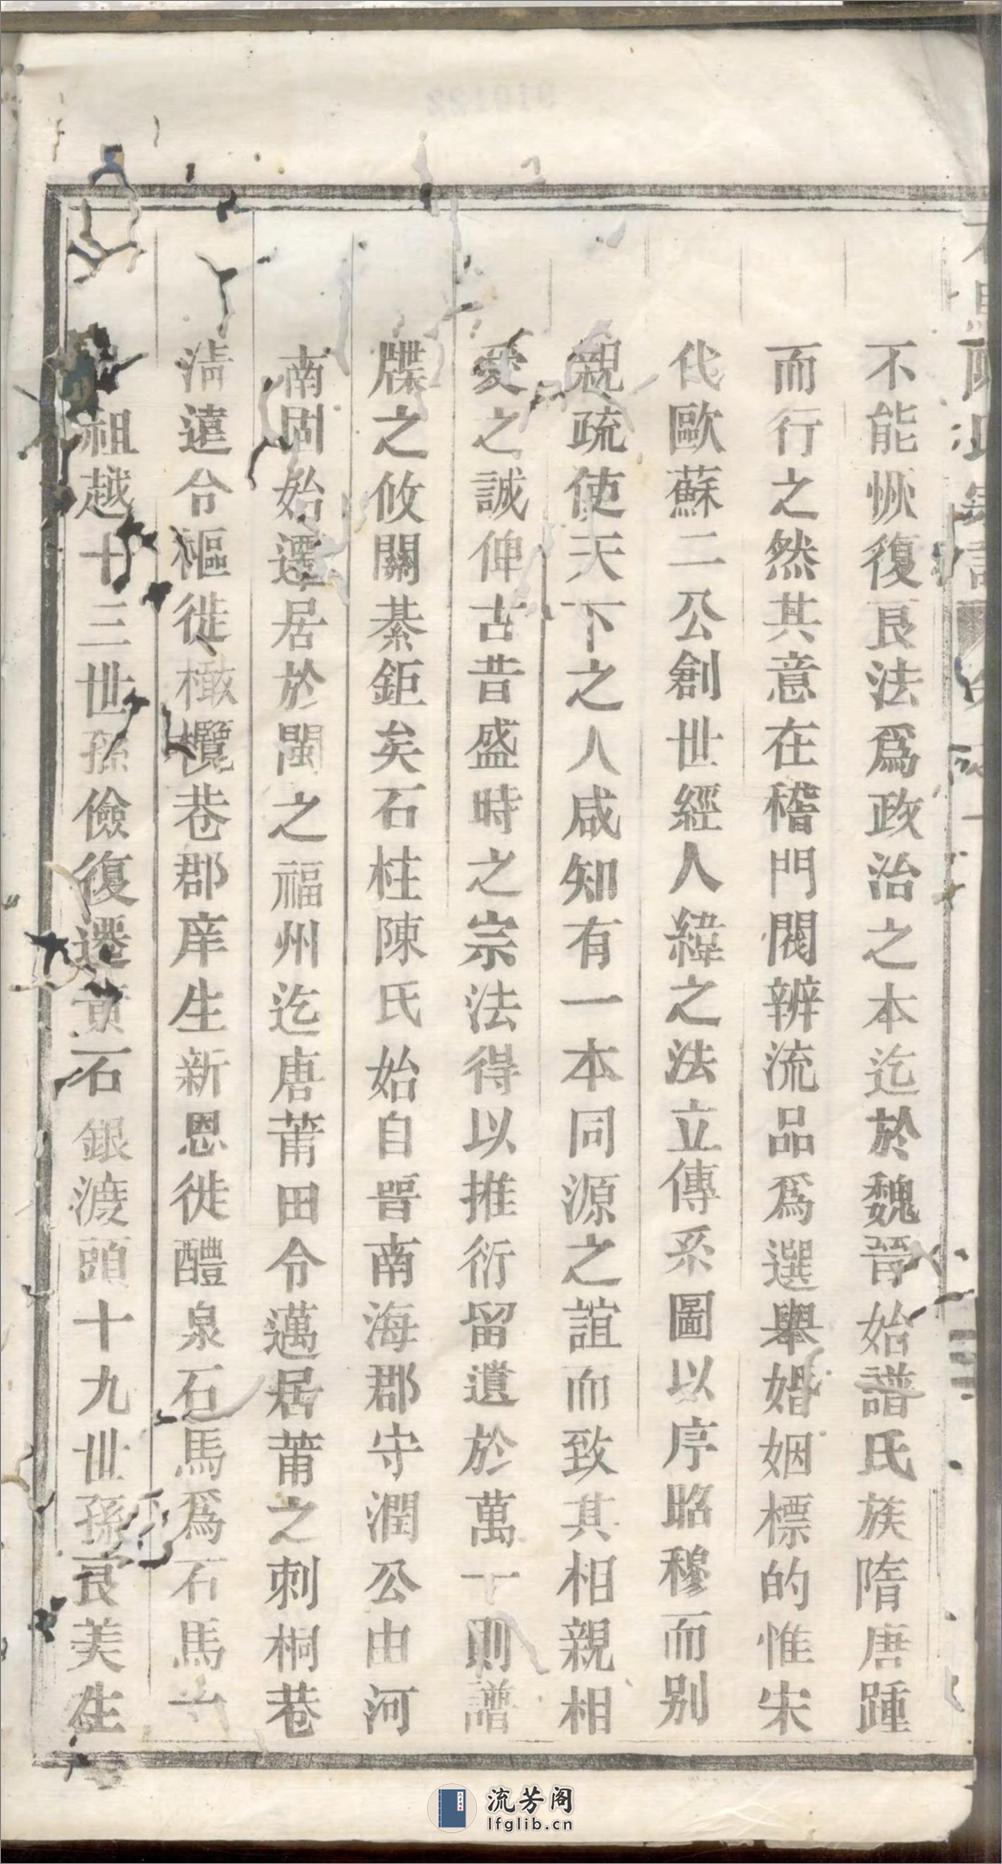 不能恢復良法爲政治之本迄於魏晉始譜氏族隋唐踵
而行之然其意在稽門閥辨流品爲選舉婚姻標的惟宋
代歐蘇二公創世經人緯之法立傳系圖以序昭穆而别
親疏使天下之人咸知有一本同源之誼而致其相親相
愛之誠俾古昔盛時之宗法得以推衍留遺於萬一則譜
牒之攸關綦鉅矣石柱陳氏始自晋南海郡守潤公由河
南固始遷居於閩之福州迄唐莆田令邁居莆之刺桐巷
清遠令樞徙橄欖巷郡庠生新恩徙醴泉石馬爲石馬
祖越十三世孫儉復遷黃石銀渡頭十九世孫良美生
流芳阁
lfglib.cn